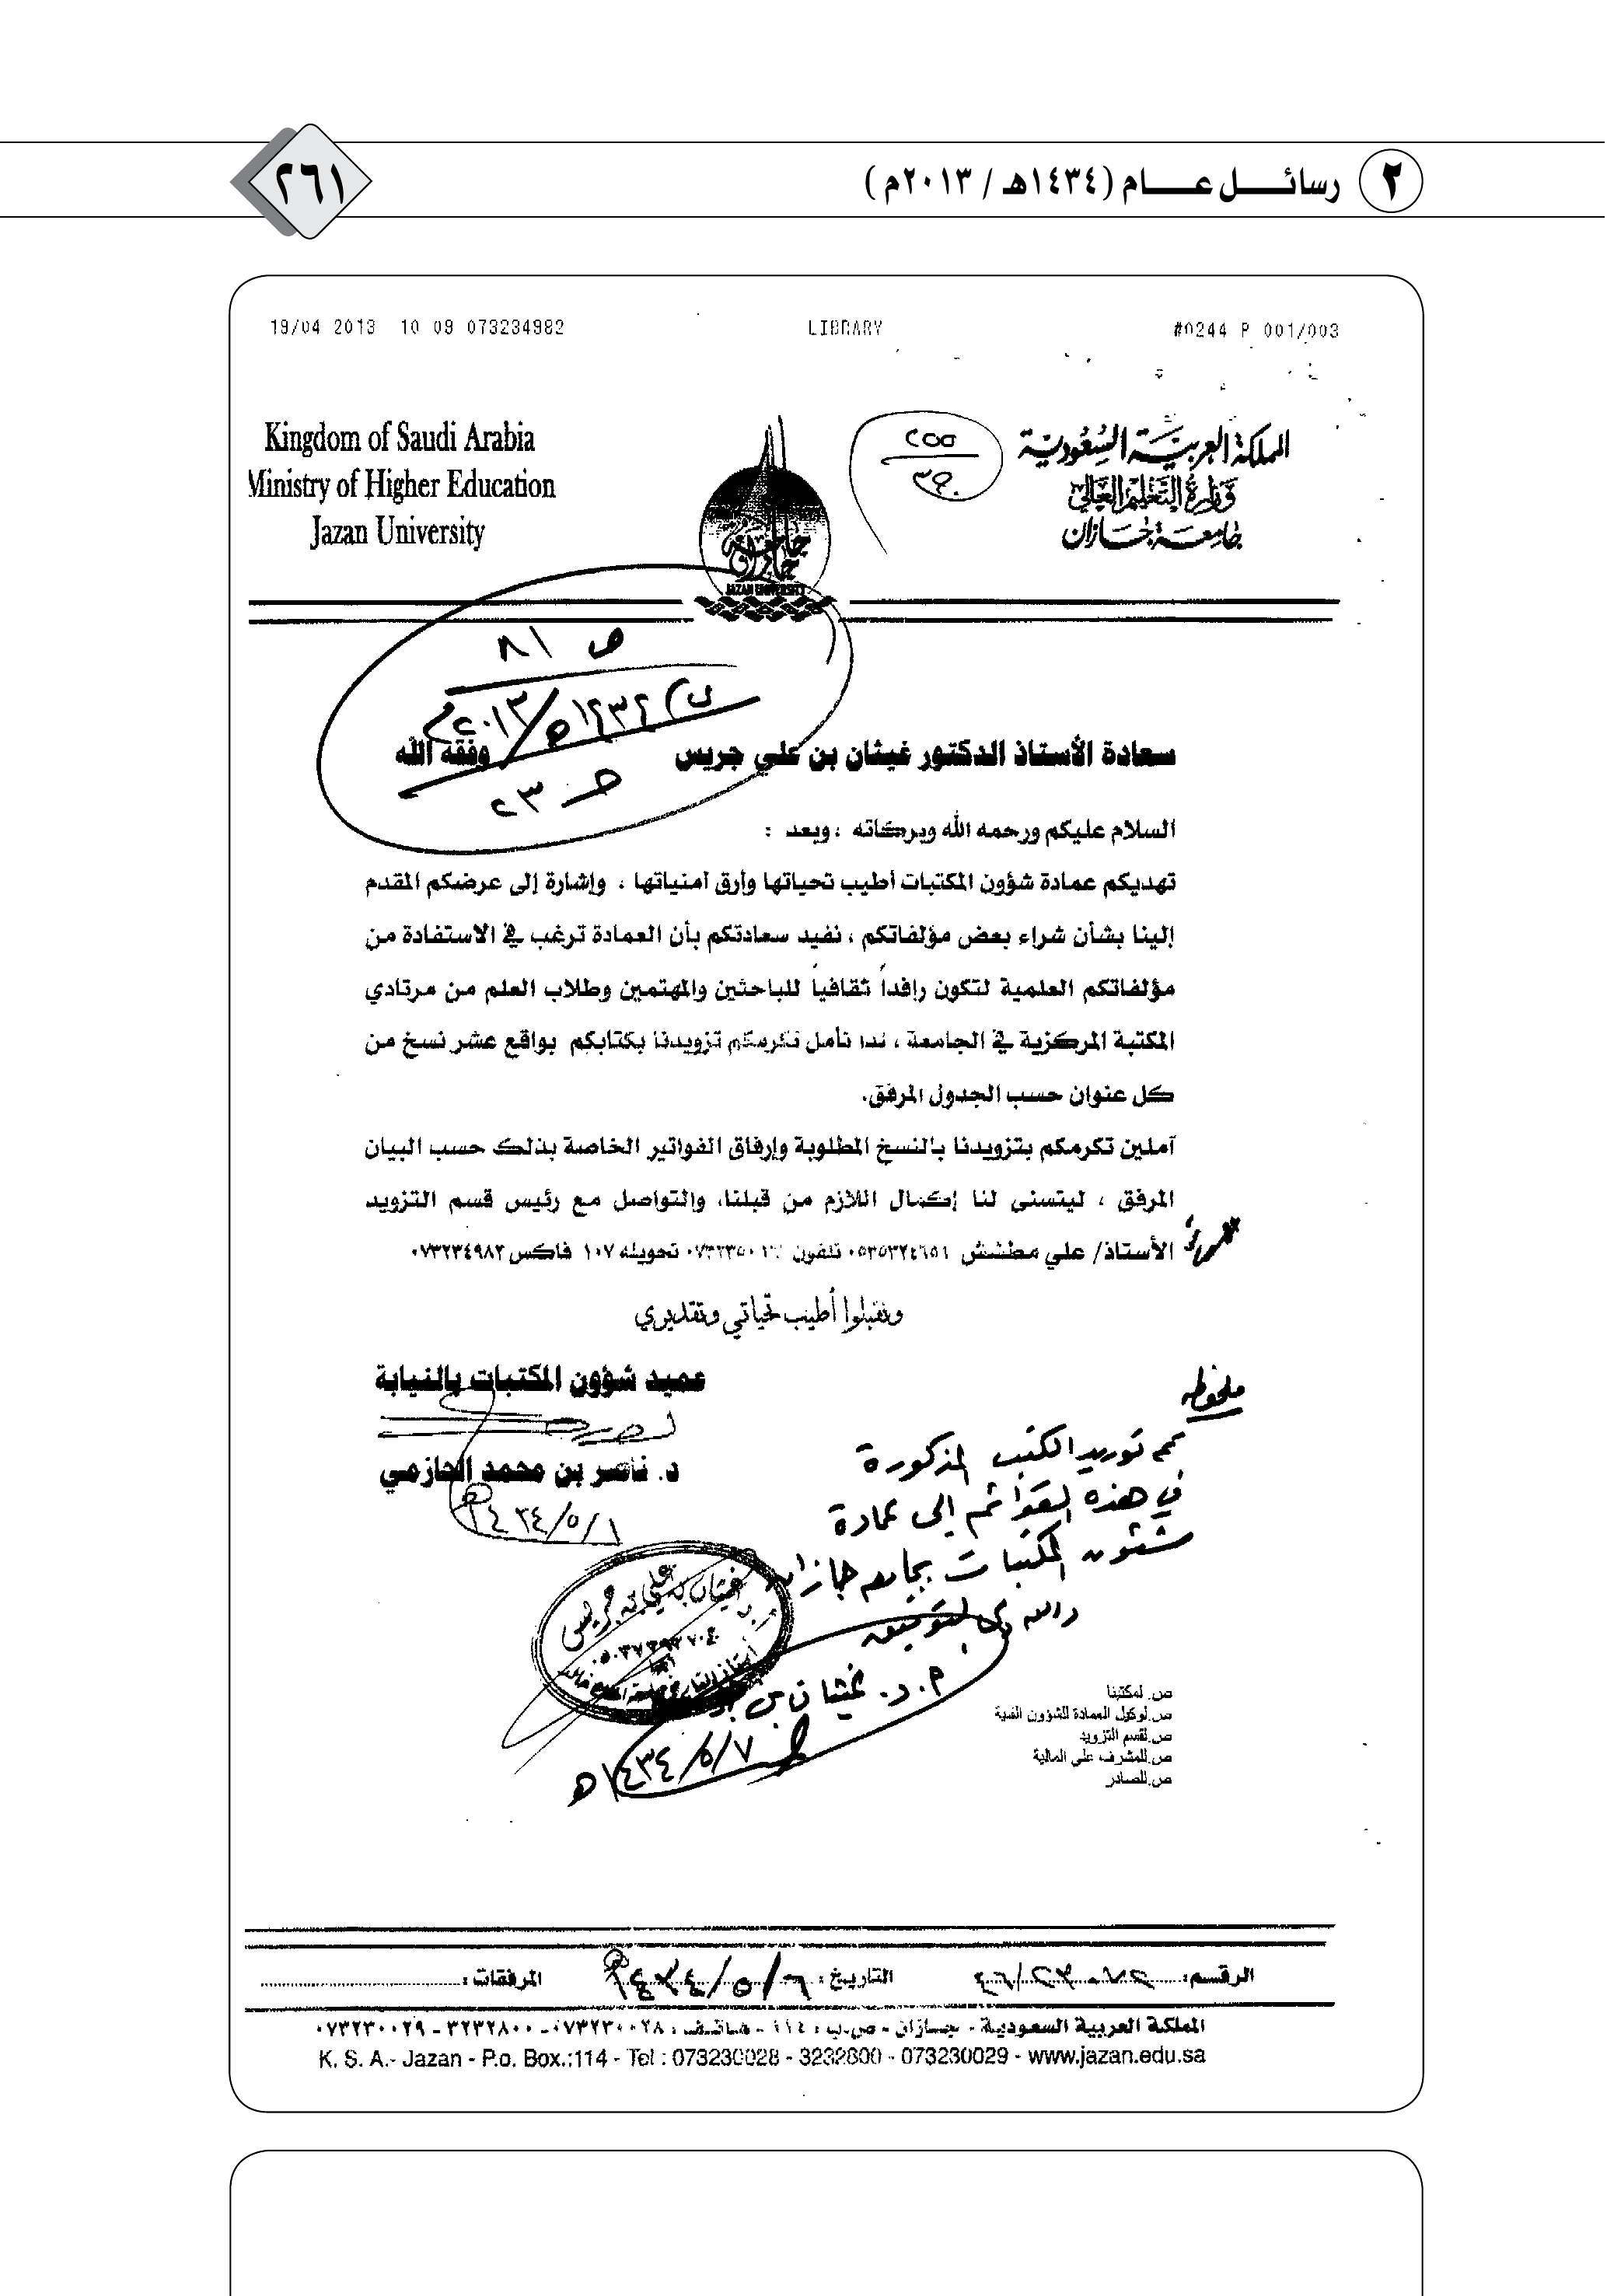 ٢ رسائــــل عــــام (١٤٣٤هـ / ٢٠١٣م)
٢٦١
19/04 2013 10 09 073234982 LIBRARY #0244 P 001/003
Kingdom of Saudi Arabia
Ministry of Higher Education
Jazan University
المملكة العربية السعودية
وزارة التعليم العالي
جامعة جازان
جامعة جازان
JAZAN UNIVERSITY
٢٥٥
٣٩٠
ص ٨١
٢٠١٣م / ١٤٣٤هـ
حـ ٢٣
سعادة الأستاذ الدكتور غيثان بن علي جريس وفقه الله
السلام عليكم ورحمه الله وبركاته ، وبعد :
تهديكم عمادة شؤون المكتبات أطيب تحياتها وأرق أمنياتها ، وإشارة إلى عرضكم المقدم
إلينا بشأن شراء بعض مؤلفاتكم ، نفيد سعادتكم بأن العمادة ترغب في الاستفادة من
مؤلفاتكم العلمية لتكون رافداً ثقافياً للباحثين والمهتمين وطلاب العلم من مرتادي
المكتبة المركزية في الجامعة ، لذا نأمل تكرمكم تزويدنا بكتابكم بواقع عشر نسخ من
كل عنوان حسب الجدول المرفق.
آملين تكرمكم بتزويدنا بالنسخ المطلوبة وإرفاق الفواتير الخاصة بذلك حسب البيان
المرفق ، ليتسنى لنا إكمال اللازم من قبلنا، والتواصل مع رئيس قسم التزويد
الأستاذ/ علي مطشش ٠٥٣٥٣٢٤٦٥١ تلفون تحويله ١٠٧ فاكس ٠٧٣٢٣٤٩٨٢
وتقبلوا أطيب تحياتي وتقديري
عميد شؤون المكتبات بالنيابة
د. ناصر بن محمد الحازمي
١/٥/١٤٣٤هـ
ملحوظه
تم توريد الكتب المذكورة
في هذه القوائم إلى عمادة
شئون المكتبات بجامعة جازان
والله ولي التوفيق
أ.د. غيثان بن جريس
٧/٥/١٤٣٤هـ
أ.د. غيثان بن علي بن جريس
ص. لمكتبنا
ص.لوكيل العمادة للشؤون الفنية
ص.لقسم التزويد
ص.للمشرف على المالية
ص.للصادر
الرقـــم: التاريخ: ٦/٥/١٤٣٤هـ المرفقات:
المملكة العربية السعودية - جـازان - ص.ب : ١١٤ - هاتـف : ٠٧٣٢٣٠٠٢٨ - ٣٢٣٢٨٠٠ - ٠٧٣٢٣٠٠٢٩
K. S. A.- Jazan - P.o. Box.:114 - Tel : 073230028 - 3232800 - 073230029 - www.jazan.edu.sa